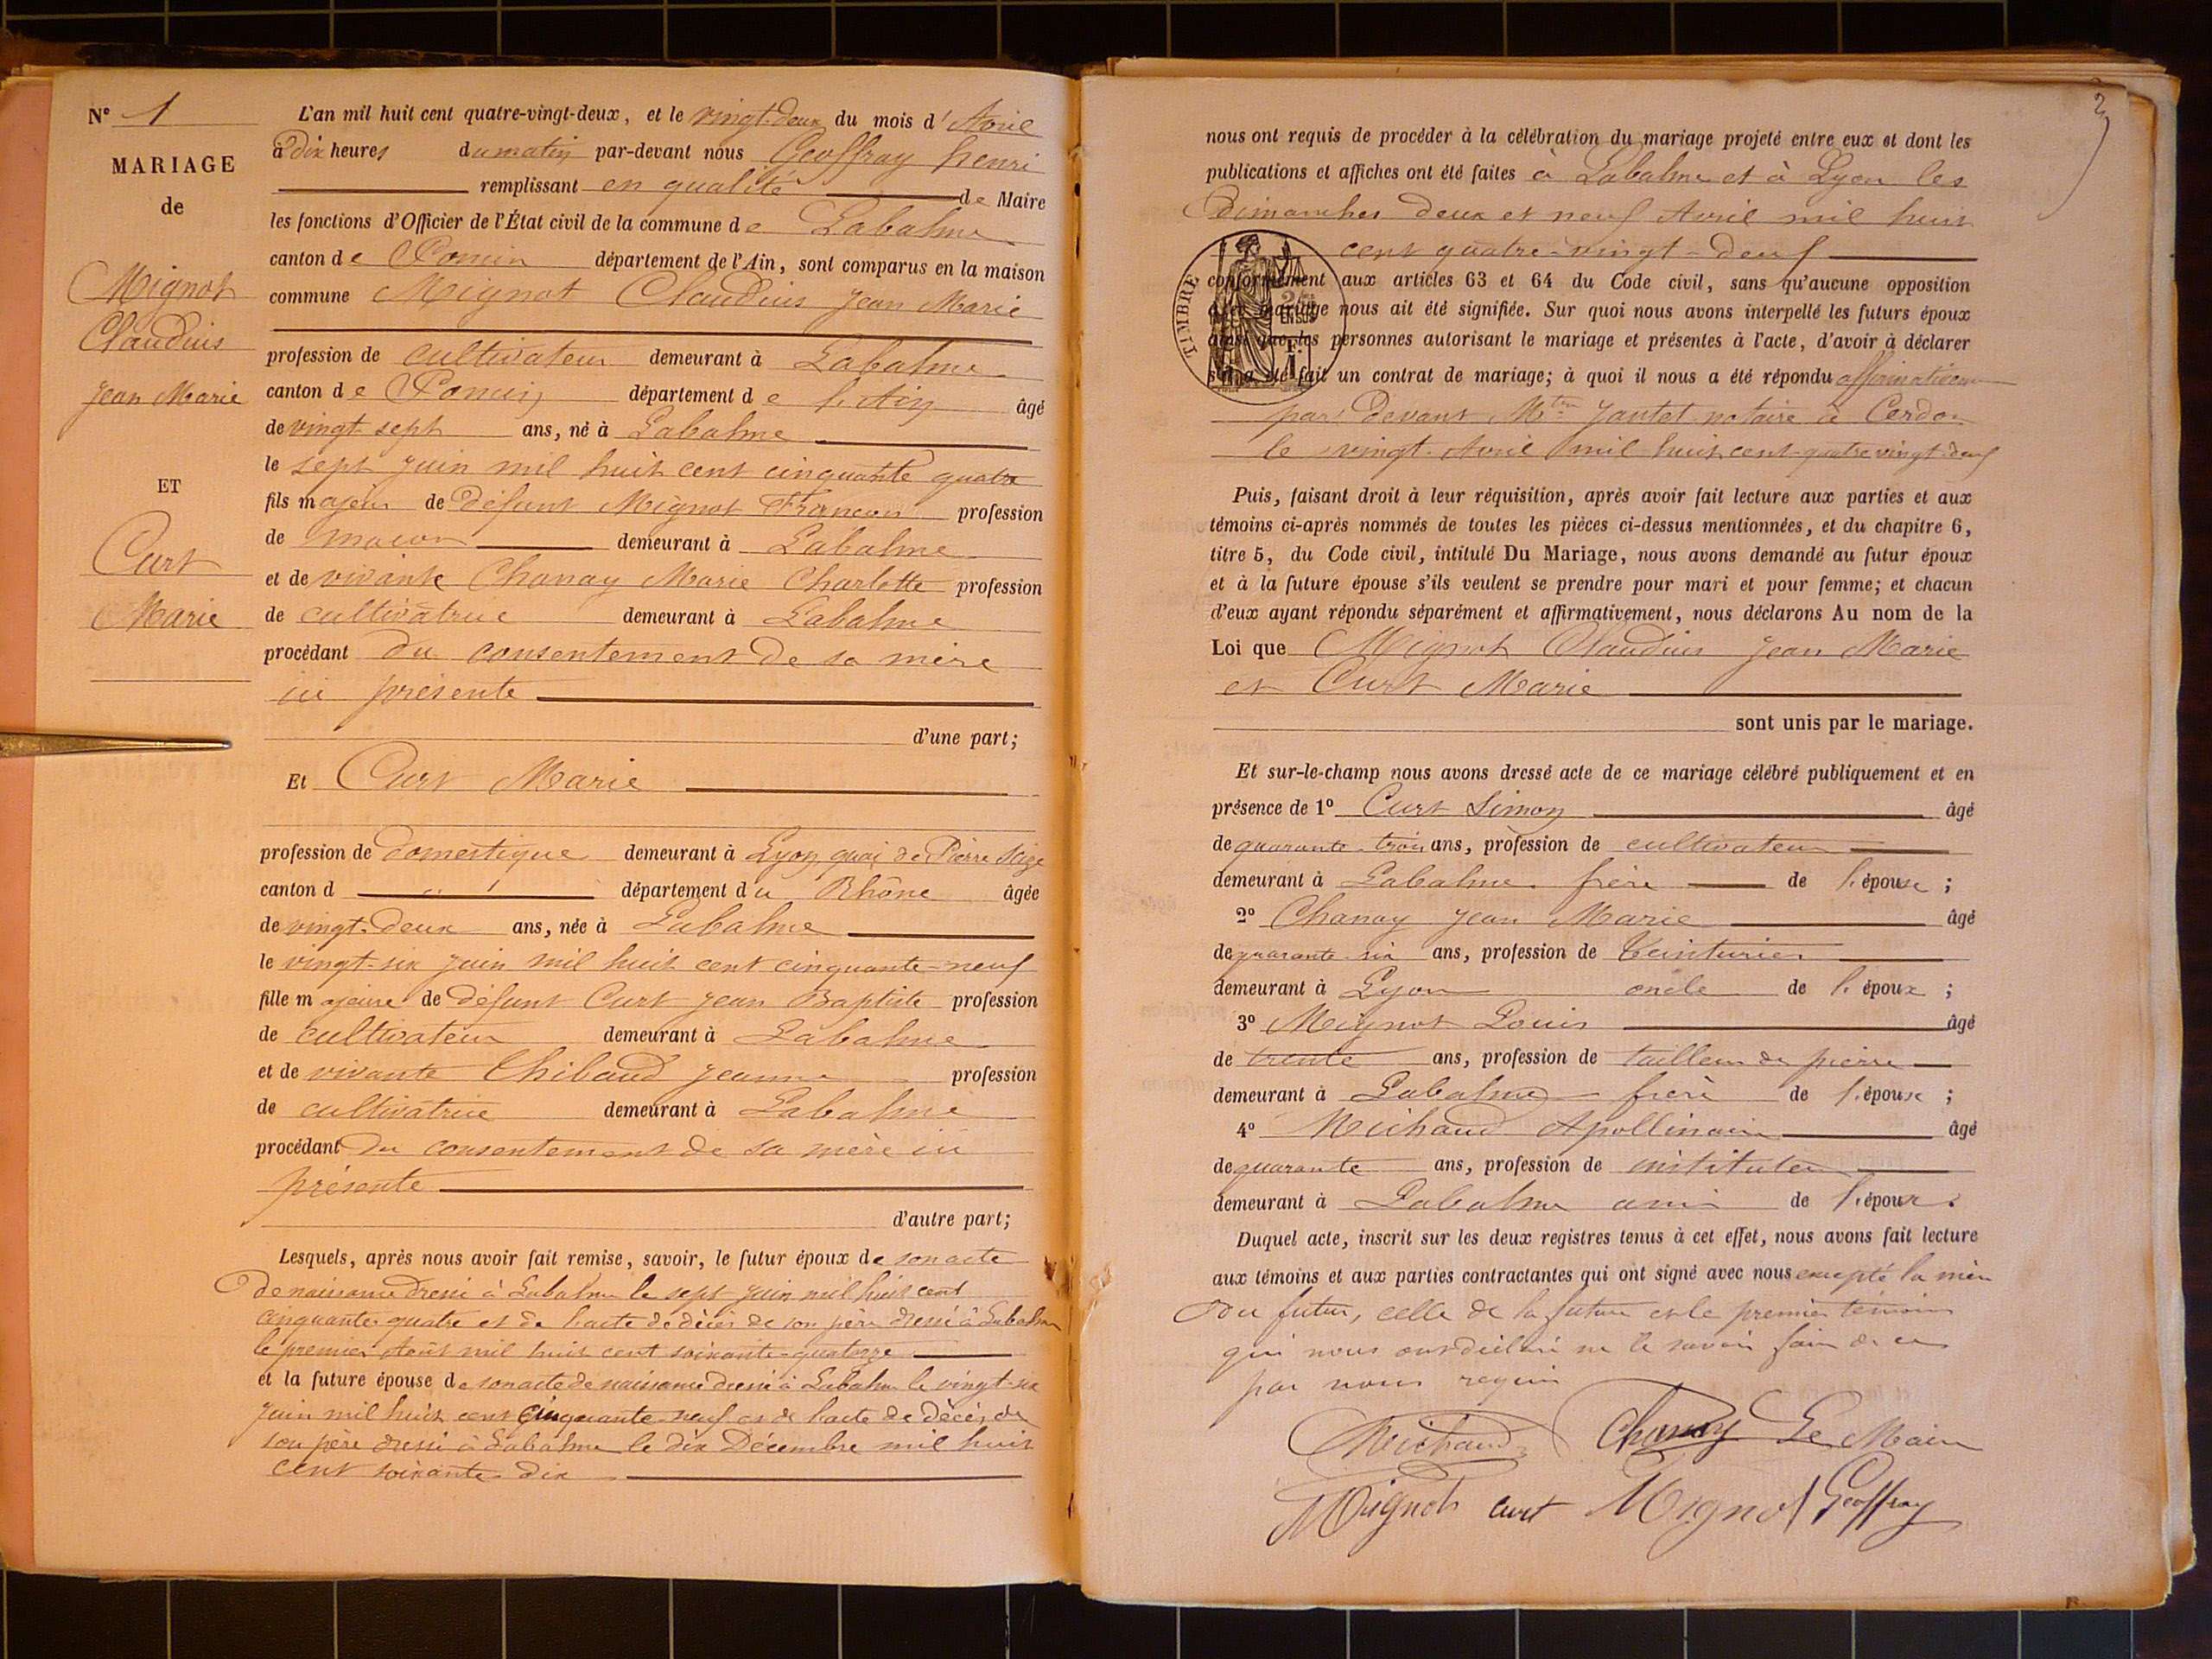 N° 1
MARIAGE
de
Mignot
Claudius
Jean Marie
ET
Curt
Marie
L'an mil huit cent quatre-vingt-deux, et le vingt-deux du mois d'Avril
à Dix heures du matin par-devant nous Geoffray henri
remplissant en qualité de Maire
les fonctions d'Officier de l'État civil de la commune de Labalme
canton de Poncin département de l'Ain, sont comparus en la maison
commune Mignot Claudius Jean Marie
profession de cultivateur demeurant à Labalme
canton de Poncin département de l'Ain âgé
de vingt-sept ans, né à Labalme
le sept juin mil huit cent cinquante quatre
fils majeur de défunt Mignot François profession
de maçon demeurant à Labalme
et de vivante Chanay Marie Charlotte profession
de cultivatrice demeurant à Labalme
procédant du consentement de sa mère
ici présente
d'une part;
Et Curt Marie
profession de domestique demeurant à Lyon, quai de Pierre Scize
canton d département du Rhône âgée
de vingt-deux ans, née à Labalme
le vingt-six juin mil huit cent cinquante-neuf
fille majeure de défunt Curt Jean Baptiste profession
de cultivateur demeurant à Labalme
et de vivante Thibaud Jeanne profession
de cultivatrice demeurant à Labalme
procédant du consentement de sa mère ici
présente
d'autre part;
Lesquels, après nous avoir fait remise, savoir, le futur époux de son acte
de naissance dressé à Labalme le sept juin mil huit cent
cinquante quatre et de l'acte de décès de son père dressé à Labalme
le premier Août mil huit cent soixante-quatorze
et la future épouse de son acte de naissance dressé à Labalme le vingt-six
juin mil huit cent cinquante-neuf et de l'acte de décès de
son père dressé à Labalme le dix Décembre mil huit
cent soixante dix
nous ont requis de procéder à la célébration du mariage projeté entre eux et dont les
publications et affiches ont été faites à Labalme et à Lyon les
Dimanches deux et neuf Avril mil huit
cent quatre-vingt-deux
TIMBRE
conformément aux articles 63 et 64 du Code civil, sans qu'aucune opposition
à ce mariage nous ait été signifiée. Sur quoi nous avons interpellé les futurs époux
ainsi que les personnes autorisant le mariage et présentes à l'acte, d'avoir à déclarer
s'il a été fait un contrat de mariage; à quoi il nous a été répondu affirmativement
par devant Jantet notaire à Cerdon
le vingt Avril mil huit cent quatre vingt deux
Puis, faisant droit à leur réquisition, après avoir fait lecture aux parties et aux
témoins ci-après nommés de toutes les pièces ci-dessus mentionnées, et du chapitre 6,
titre 5, du Code civil, intitulé Du Mariage, nous avons demandé au futur époux
et à la future épouse s'ils veulent se prendre pour mari et pour femme; et chacun
d'eux ayant répondu séparément et affirmativement, nous déclarons Au nom de la
Loi que Mignot Claudius Jean Marie
et Curt Marie
sont unis par le mariage.
Et sur-le-champ nous avons dressé acte de ce mariage célébré publiquement et en
présence de 1° Curt Simon âgé
de quarante-trois ans, profession de cultivateur
demeurant à Labalme frère de l'épouse ;
2° Chanay Jean Marie âgé
de quarante six ans, profession de teinturier
demeurant à Lyon oncle de l'époux ;
3° Mignot Louis âgé
de trente ans, profession de tailleur de pierre
demeurant à Labalme frère de l'épouse ;
4° Michaud Apollinaire âgé
de quarante ans, profession de instituteur
demeurant à Labalme ami de l'époux.
Duquel acte, inscrit sur les deux registres tenus à cet effet, nous avons fait lecture
aux témoins et aux parties contractantes qui ont signé avec nous excepté la mère
du futur, celle de la future et le premier témoin
qui nous ont déclaré ne le savoir faire de ce
par nous requis
Michaud Chanay Le Maire
Mignot Curt Mignot Geoffray